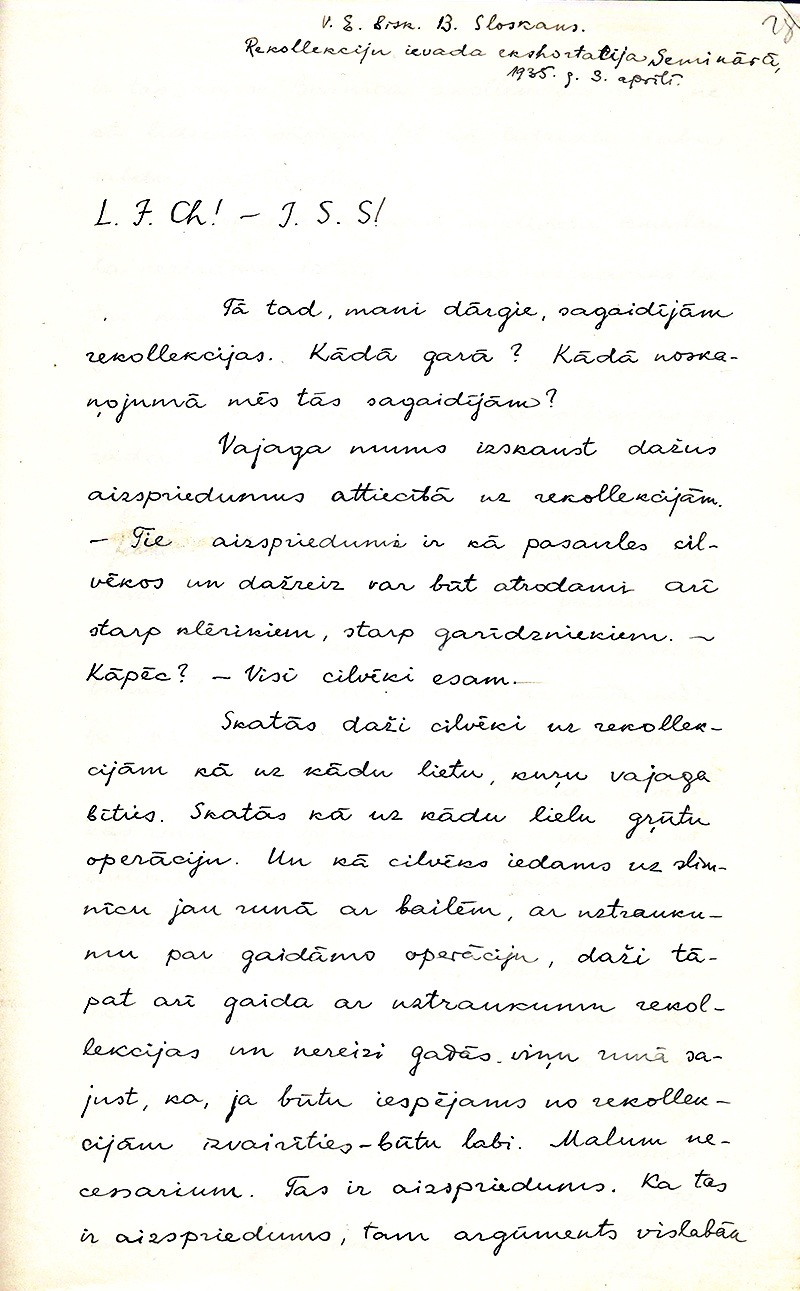 V. E. Bisk. B. Sloskans.
28
Rekollekciju ievada ekshortacija Seminārā,
1935. g. 3. aprīlī.
L. J. Ch! – J. S. S!
Tā tad, mani dārgie, sagaidījām
rekollekcijas. Kādā garā? Kādā noska-
ņojumā mēs tās sagaidījām?
Vajaga mums izskaust dažus
aizspriedumus attiecībā uz rekollekcijām.
– Tie aizspriedumi ir kā pasaules cil-
vēkos un dažreiz var būt atrodami arī
starp klērikiem, starp garīdzniekiem. –
Kāpēc? – Visi cilvēki esam. –
Skatās daži cilvēki uz rekollek-
cijām kā uz kādu lietu, kuŗu vajaga
bīties. Skatās kā uz kādu lielu gŗūtu
operāciju. Un kā cilvēks iedams uz slim-
nīcu jau runā ar bailēm, ar uztrauku-
mu par gaidāmo operāciju, daži tā-
pat arī gaida ar uztraukumu rekol-
lekcijas un nereizi gadās viņu runā sa-
just, ka, ja būtu iespējams no rekollek-
cijām izvairīties – būtu labi. Malum ne-
cessarium. Tas ir aizspriedums. Ka tas
ir aizspriedums, tam argūments vislabāk